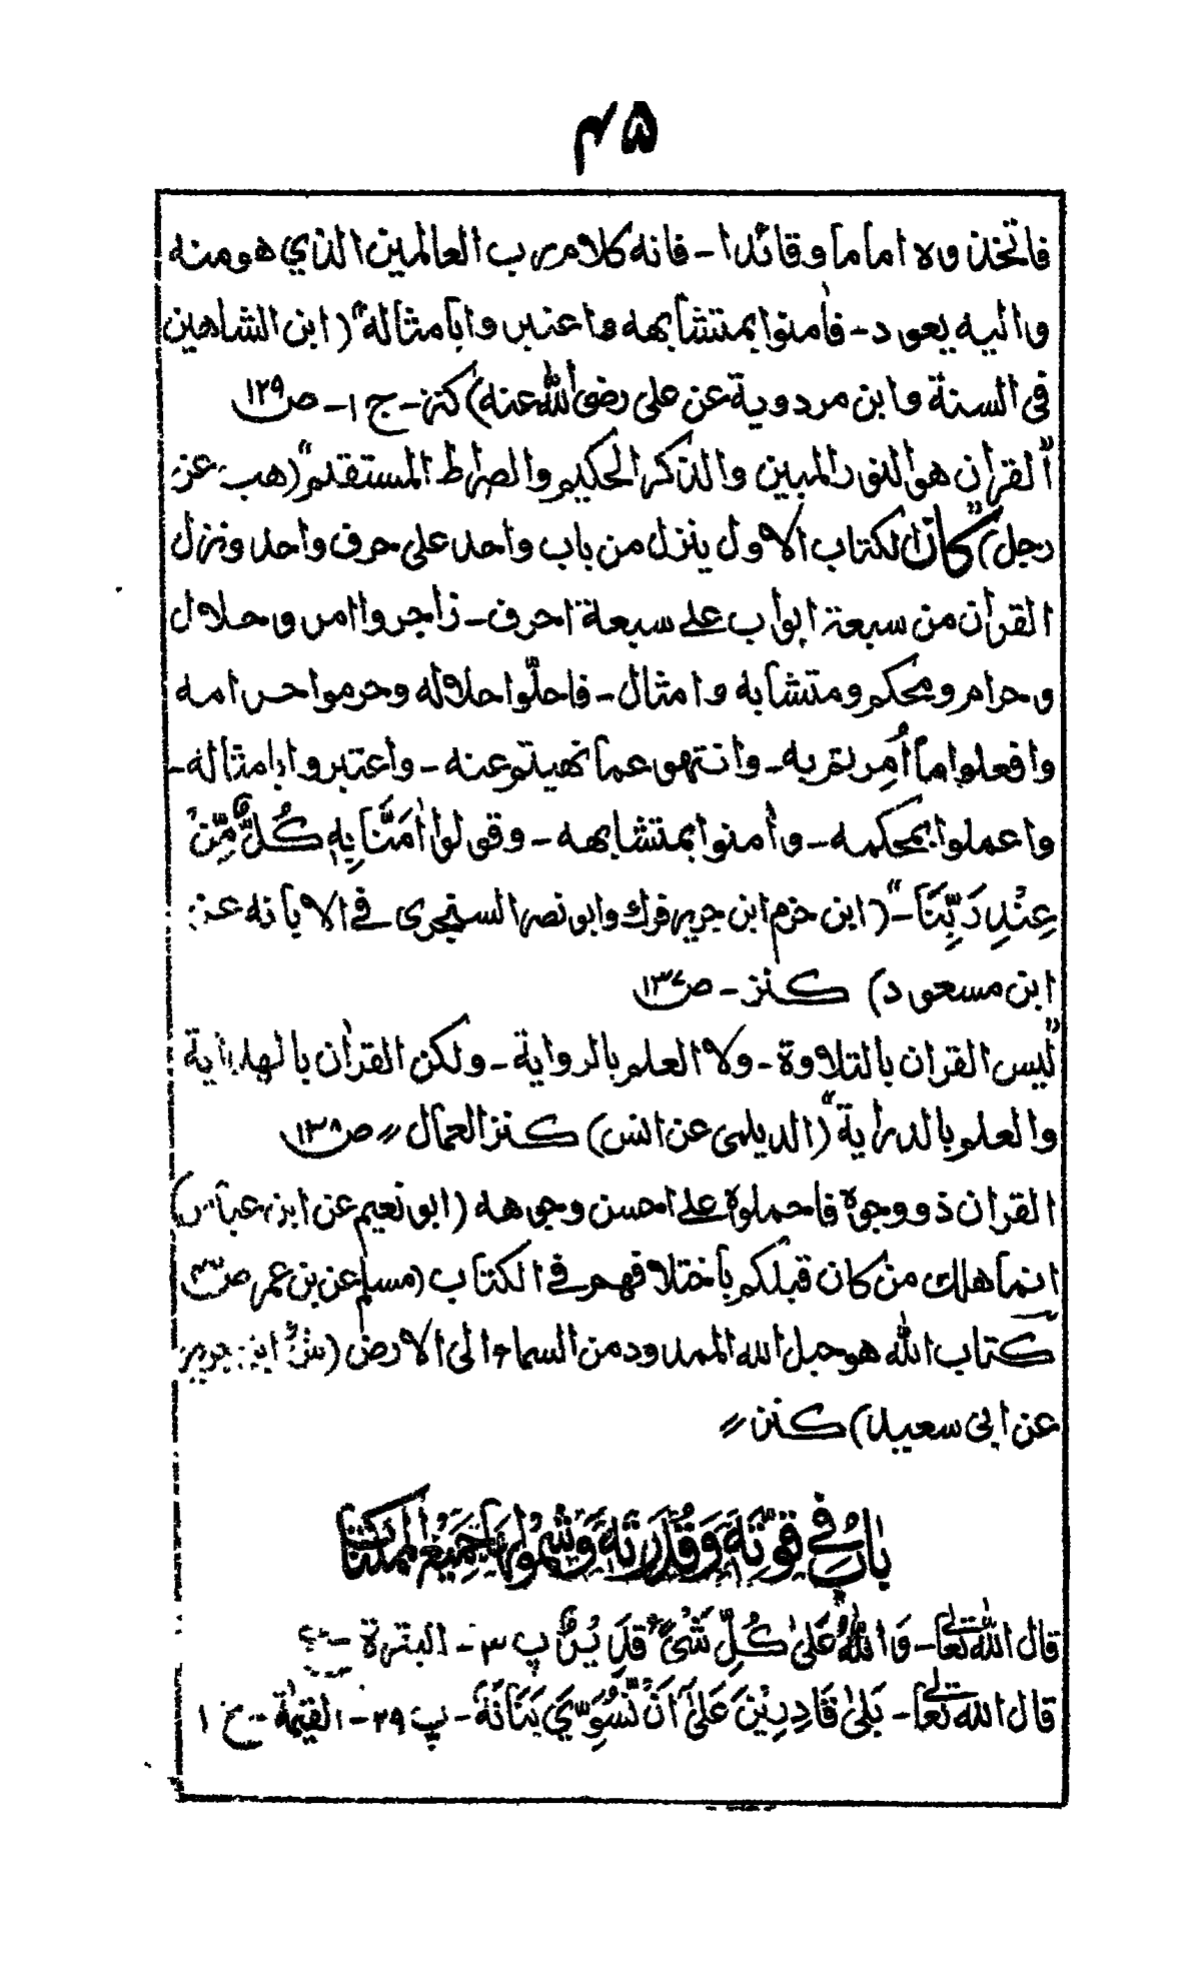 ۴۵
فاتخذوہ اماما وقائدا - فانه کلام رب العالمین الذي هو منه
والیه یعود - فاٰمنوا بمتشابهه واعتبروا بامثاله" (ابن الشاهین
فی السنة وابن مردویة عن علی رضی الله عنه) کنز - ج ۱ - ص ۱۲۹
"القراٰن هو النور المبین والذکر الحکیم والصراط المستقیم" (هب عن
رجل) "کان الکتاب الاول ینزل من باب واحد علی حرف واحد ونزل
القراٰن من سبعة ابواب علے سبعة احرف - زاجر واامر وحلال
وحرام ومحکم ومتشابه وامثال - فاحلّوا حلاله وحرموا حرامه
وافعلوا ما اُمِرتم به - وانتهو عما نهیتم عنه - واعتبروا بامثاله -
واعملوا بمحکمه - واٰمنوا بمتشابهه - وقولوا اٰمَنَّا بِهٖ کُلٌّ مِّنْ
عِنْدِ رَبِّنَا -" (ابن حزم ابن جریر ك وابو نصر السنجری فے الابانه عن:
ابن مسعود) کنز - ص ۱۳۷
"لیس القراٰن بالتلاوة - ولا العلم بالروایة - ولکن القراٰن بالهدایة
والعلم بالدرایة" (الدیلمی عن انس) کنز العمال 〃 ص ۱۳۸
القراٰن ذو وجوه فاحملوه علے احسن وجوهه (ابو نعیم عن ابن عباس)
انما هلك من کان قبلکم باختلافهم فے الکتاب (مسلم عن بن عمر ص
کتاب الله هو حبل الله الممدود من السماء الی الارض (ش ابن جریر
عن ابی سعید) کنز 〃
بَابُ فِی قُوَّتِهٖ وَقُدْرَتِهٖ وَشُمُولِهَا جَمِیْعَ الْمُمْکِنَاتِ
قال الله تعالٰی - وَاللهُ عَلٰی کُلِّ شَیْءٍ قَدِیْرٌ پ ۳ - البقرة -
قال الله تعالٰی - بَلٰی قَادِرِیْنَ عَلٰی اَنْ نُّسَوِّيَ بَنَانَهٗ - پ ۲۹ - القیٰمة - ع ۱